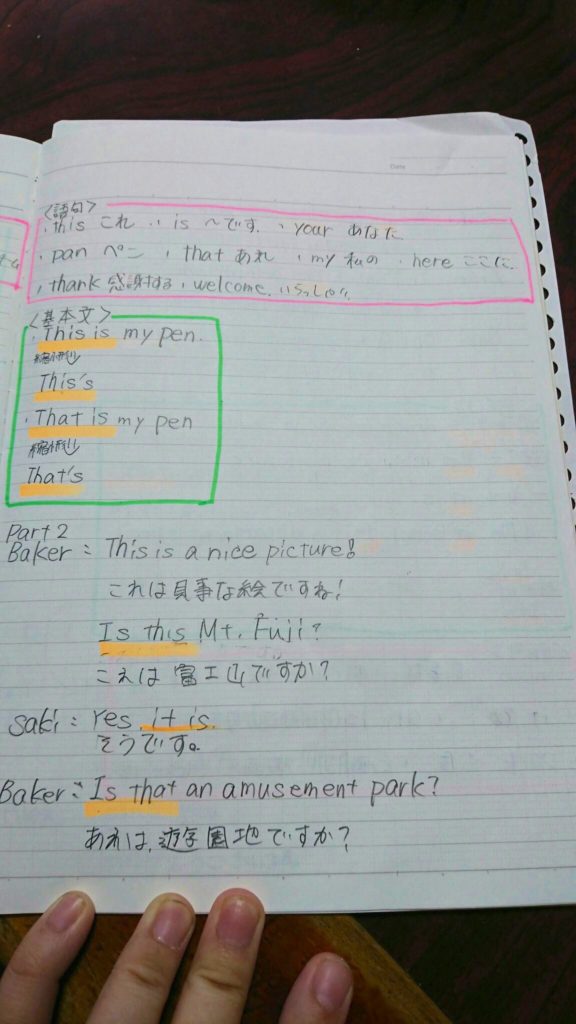 Date
<語句>
・this これ ・is 〜です ・your あなた
・pan ペン ・that あれ ・my 私の ・here ここに
・thank 感謝する ・welcome. いらっしゃい
<基本文>
・This is my pen.
縮形↓
This's
・That is my pen
縮形↓
That's
Part 2
Baker: This is a nice picture!
これは見事な絵ですね!
Is this Mt. Fuji?
これは富士山ですか?
Saki: Yes, it is.
そうです。
Baker: Is that an amusement park?
あれは,遊園地ですか?